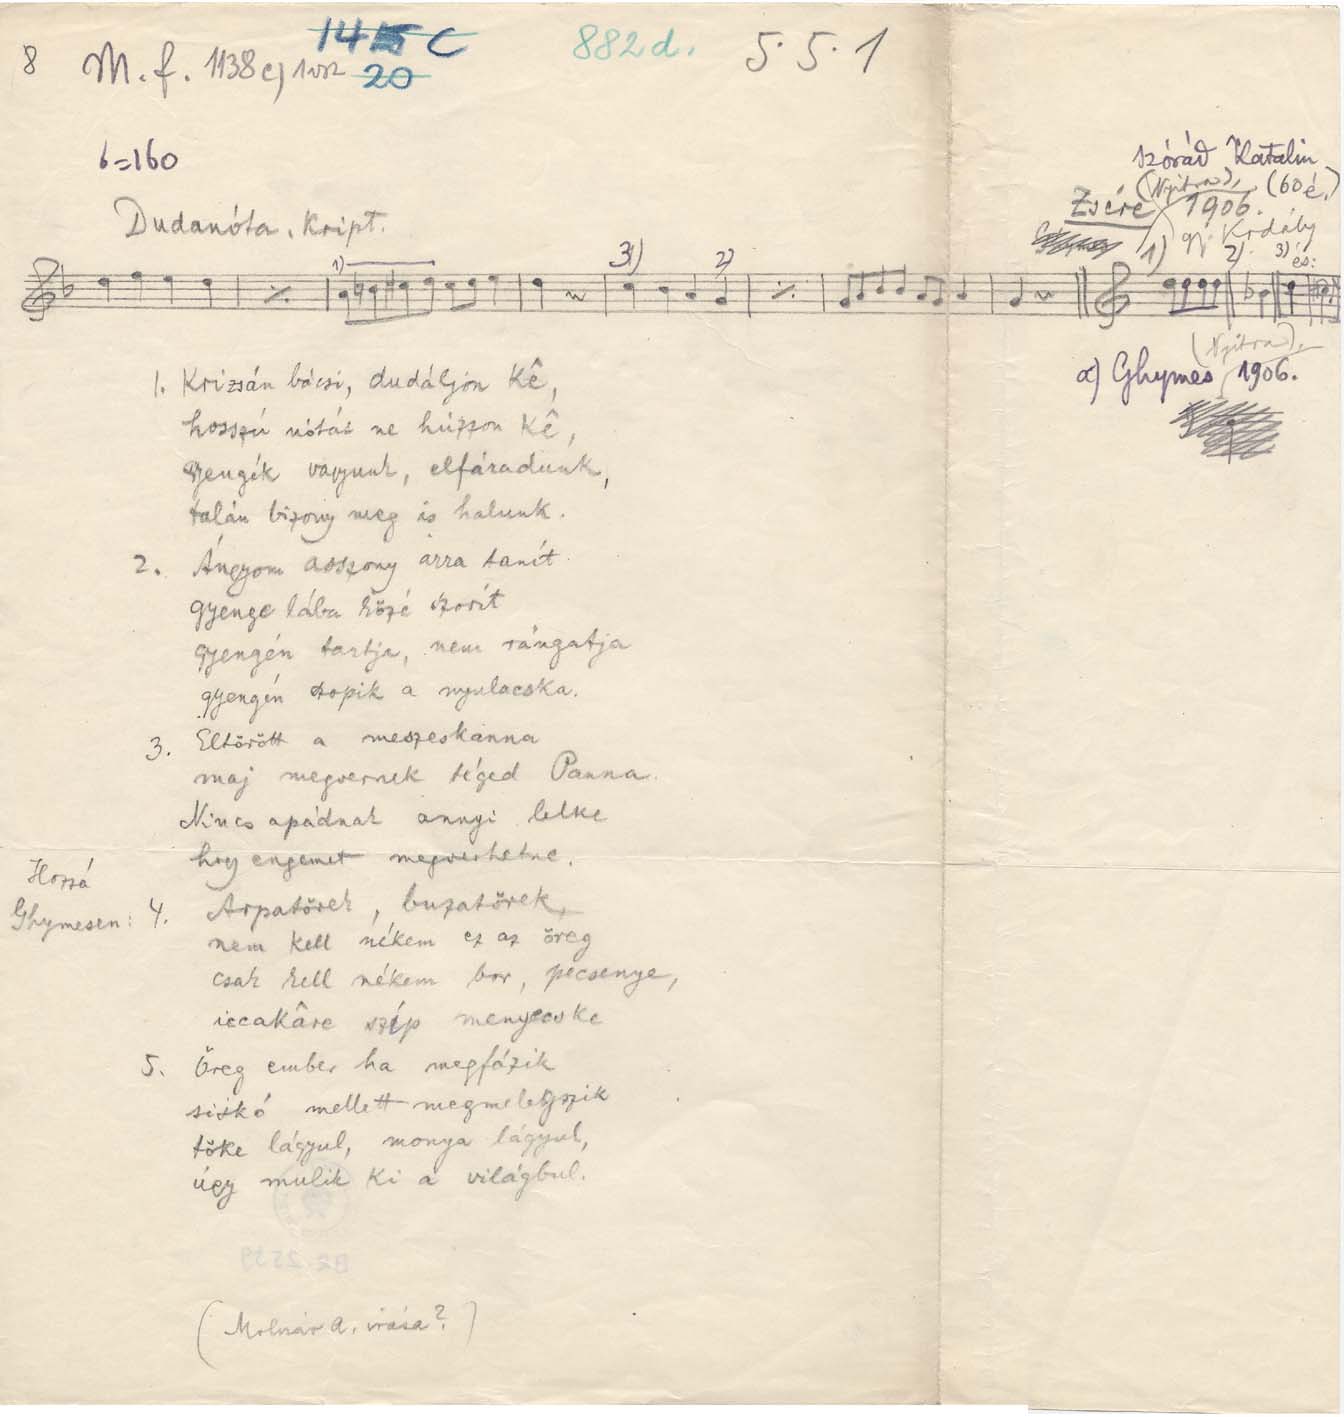 8 M. f. 1138c) 1vsz 14 C 882d. 5. 5. 1
20
=160
Szórád Katalin
(Nyitra), (60 é.)
Zsére 1906.
Dudanóta. Kript.
gj. Krdály
1) 3) 2) 1) 2) 3) és:
(Nyitra),
a) Ghymes 1906.
1. Krizsán bácsi, dudáljon kê,
hosszú nótát ne húzzon kê,
gyengék vagyunk, elfáradunk,
talán bizony meg is halunk.
2. Ángyom asszony arra tanít
gyenge lába közé szorít
gyengén tartja, nem rángatja
gyengén szopik a nyulacska.
3. Eltörött a meszeskanna
maj megvernek téged Panna.
Nincs apádnak annyi lelke
hogy engemet megverhetne.
Hozzá
Ghymesen: 4. Árpatörek, buzatörek,
nem kell nékem ez az öreg
csak kell nékem bor, pecsenye,
iccakâre szép menyecske
5. Öreg ember ha megfázik
sutkó mellett megmelegszik
töke lágyul, monya lágyul,
úgy mulik ki a világbul.
BR 2539
(Molnár A. írása?)